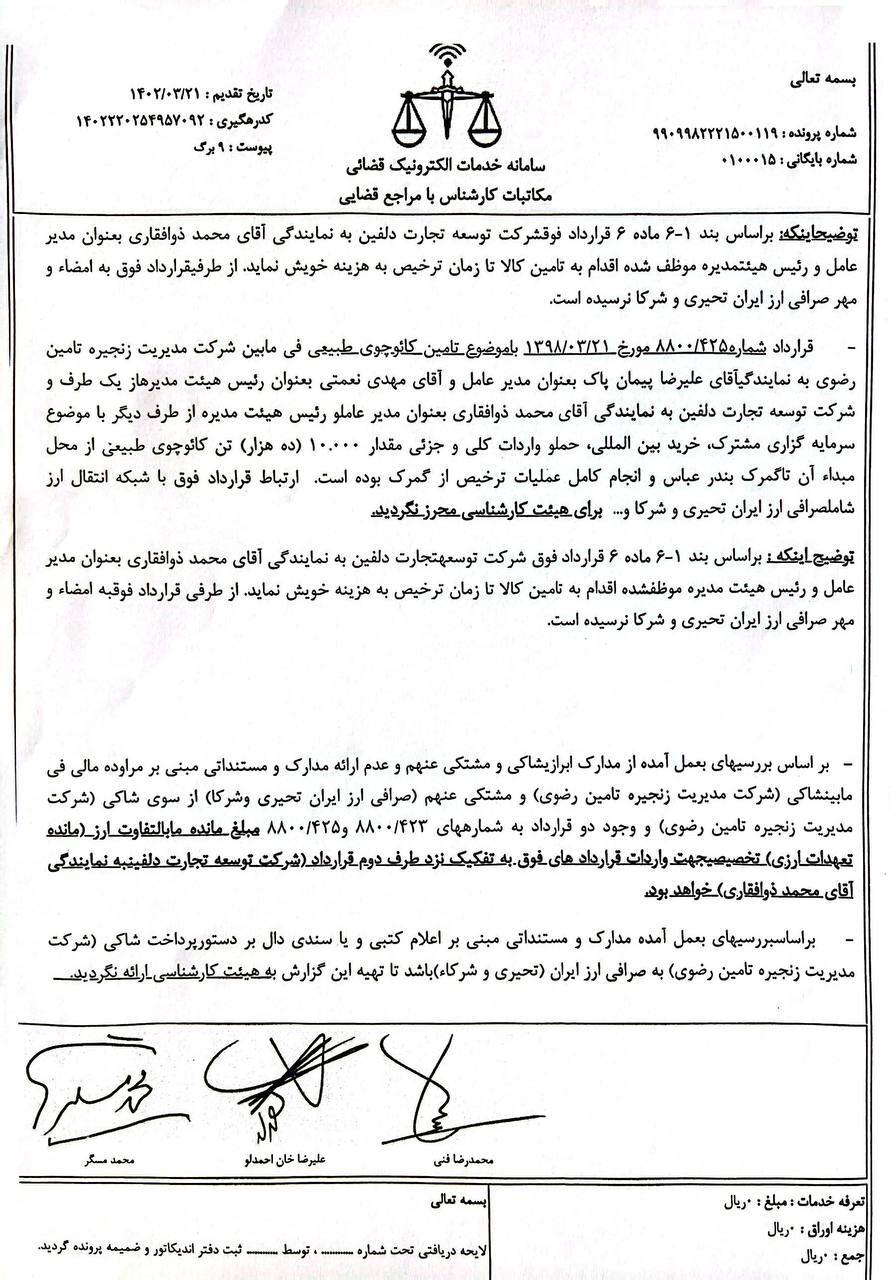 بسمه تعالی
شماره پرونده : ۹۹۰۹۹۸۲۲۲۱۵۰۰۱۱۹
شماره بایگانی : ۰۱۰۰۰۱۵
سامانه خدمات الکترونیک قضائی
مکاتبات کارشناس با مراجع قضایی
تاریخ تقدیم : ۱۴۰۲/۰۳/۲۱
کدرهگیری : ۱۴۰۲۲۲۰۲۵۴۹۵۷۰۹۲
پیوست : ۹ برگ
توضیحاینکه: براساس بند ۱-۶ ماده ۶ قرارداد فوقشرکت توسعه تجارت دلفین به نمایندگی آقای محمد ذوافقاری بعنوان مدیر
عامل و رئیس هیئتمدیره موظف شده اقدام به تامین کالا تا زمان ترخیص به هزینه خویش نماید. از طرفیقرارداد فوق به امضاء و
مهر صرافی ارز ایران تحیری و شرکا نرسیده است.
- قرارداد شماره۸۸۰۰/۴۲۵ مورخ ۱۳۹۸/۰۳/۲۱ باموضوع تامین کائوچوی طبیعی فی مابین شرکت مدیریت زنجیره تامین
رضوی به نمایندگیآقای علیرضا پیمان پاک بعنوان مدیر عامل و آقای مهدی نعمتی بعنوان رئیس هیئت مدیرهاز یک طرف و
شرکت توسعه تجارت دلفین به نمایندگی آقای محمد ذوافقاری بعنوان مدیر عاملو رئیس هیئت مدیره از طرف دیگر با موضوع
سرمایه گزاری مشترک، خرید بین المللی، حملو واردات کلی و جزئی مقدار ۱۰.۰۰۰ (ده هزار) تن کائوچوی طبیعی از محل
مبداء آن تاگمرک بندر عباس و انجام کامل عملیات ترخیص از گمرک بوده است. ارتباط قرارداد فوق با شبکه انتقال ارز
شاملصرافی ارز ایران تحیری و شرکا و... برای هیئت کارشناسی محرز نگردید.
توضیح اینکه : براساس بند ۱-۶ ماده ۶ قرارداد فوق شرکت توسعهتجارت دلفین به نمایندگی آقای محمد ذوافقاری بعنوان مدیر
عامل و رئیس هیئت مدیره موظفشده اقدام به تامین کالا تا زمان ترخیص به هزینه خویش نماید. از طرفی قرارداد فوقبه امضاء و
مهر صرافی ارز ایران تحیری و شرکا نرسیده است.
- بر اساس بررسیهای بعمل آمده از مدارک ابرازیشاکی و مشتکی عنهم و عدم ارائه مدارک و مستنداتی مبنی بر مراوده مالی فی
مابینشاکی (شرکت مدیریت زنجیره تامین رضوی) و مشتکی عنهم (صرافی ارز ایران تحیری وشرکا) از سوی شاکی (شرکت
مدیریت زنجیره تامین رضوی) و وجود دو قرارداد به شمارههای ۸۸۰۰/۴۲۳ و۸۸۰۰/۴۲۵ مبلغ مانده مابالتفاوت ارز (مانده
تعهدات ارزی) تخصیصیجهت واردات قرارداد های فوق به تفکیک نزد طرف دوم قرارداد (شرکت توسعه تجارت دلفینبه نمایندگی
آقای محمد ذوافقاری) خواهد بود.
- براساسبررسیهای بعمل آمده مدارک و مستنداتی مبنی بر اعلام کتبی و یا سندی دال بر دستورپرداخت شاکی (شرکت
مدیریت زنجیره تامین رضوی) به صرافی ارز ایران (تحیری و شرکاء)باشد تا تهیه این گزارش به هیئت کارشناسی ارائه نگردید.
محمدرضا فنی
علیرضا خان احمدلو
محمد مسگر
تعرفه خدمات : مبلغ : ۰ریال
هزینه اوراق : ۰ریال
جمع : ۰ریال
بسمه تعالی
لایحه دریافتی تحت شماره ........... ، توسط ........... ثبت دفتر اندیکاتور و ضمیمه پرونده گردید.